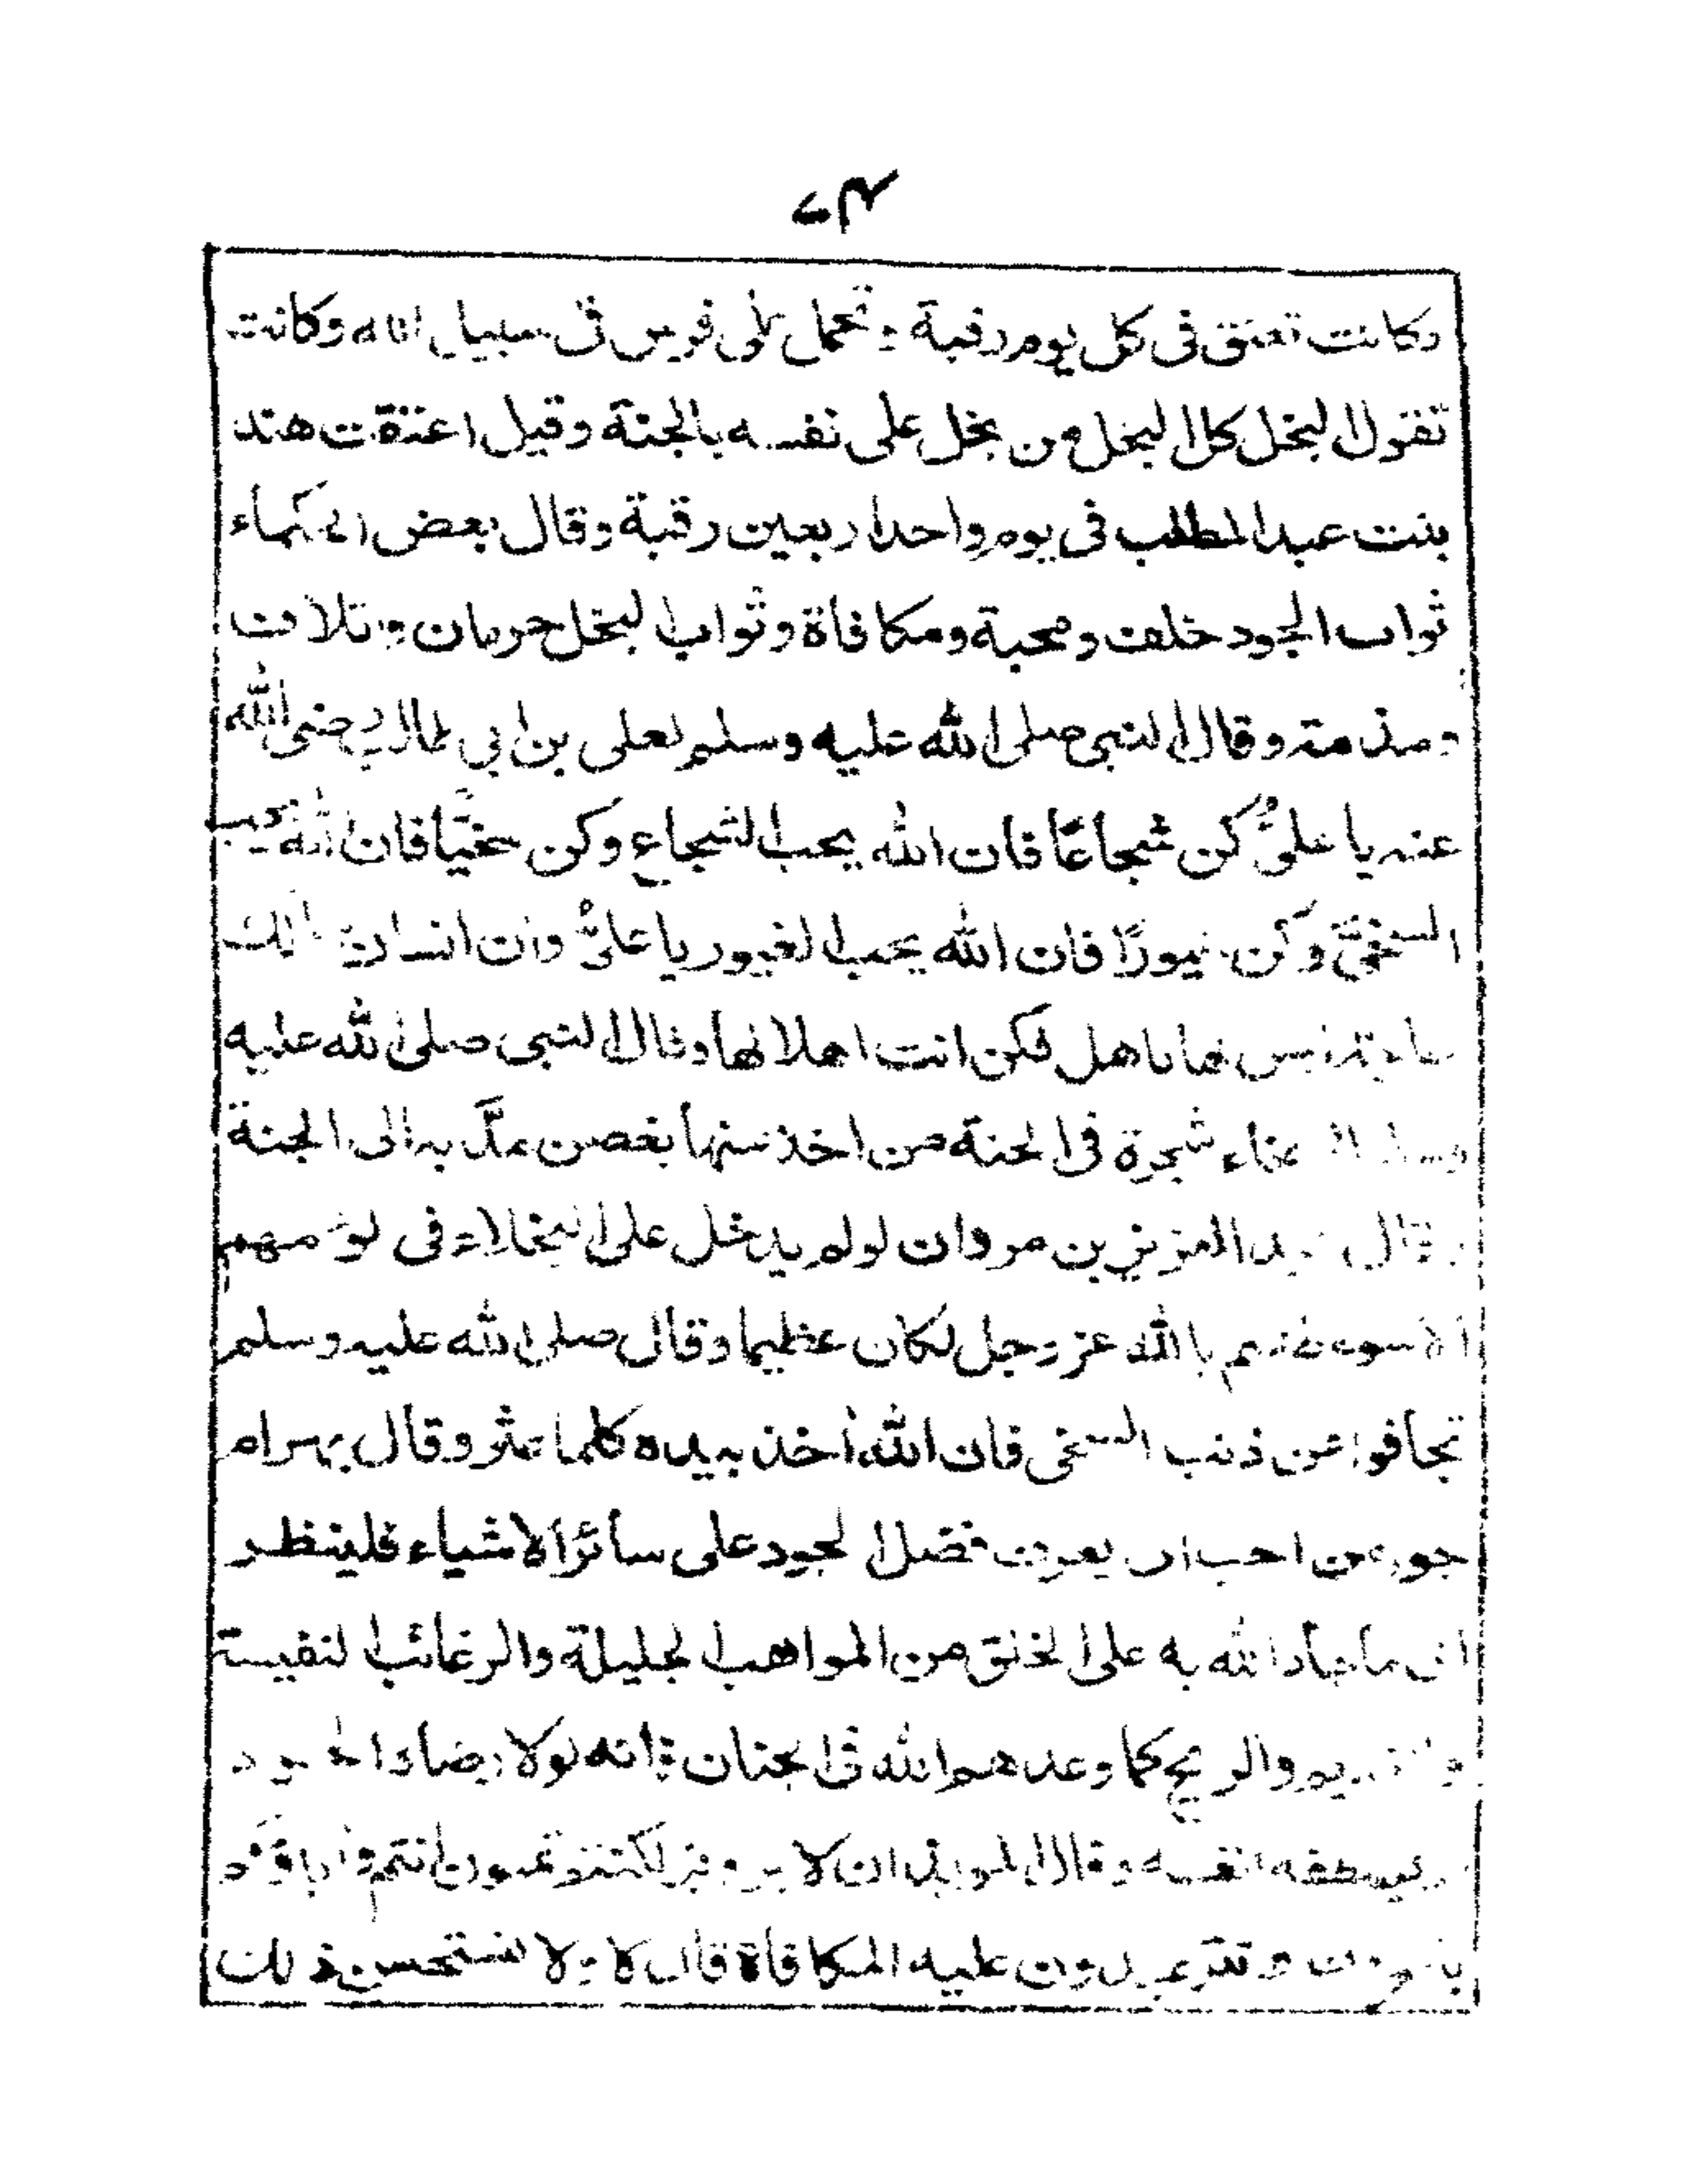 ٤٧
وكانت تعتق فى كل يوم رقبة وتحمل على فرس فى سبيل الله وكانت
تقول البخل كل البخل من بخل على نفسه بالجنة وقيل اعتقت هند
بنت عبد المطلب فى يوم واحد اربعين رقبة وقال بعض الحكماء
ثواب الجود خلف ومحبة ومكافأة وثواب البخل حرمان واتلاف
ومذمة وقال النبى صلى الله عليه وسلم لعلى بن ابي طالب رضى الله
عنه يا علىُّ كن شجاعًا فان الله يحب الشجاع وكن سخيًّا فان الله يحب
السخىَّ وكن غيورًا فان الله يحب الغيور يا علىُّ وان انسان سألك
حاجة ليس لها باهل فكن انت اهلا لها وقال النبى صلى الله عليه
وسلم السخاء شجرة فى الجنة من اخذ منها بغصن مدّ به الى الجنة
وقال عبد العزيز بن مروان لو لم يدخل على البخلاء فى لؤمهم
الا سوء ظنهم بالله عز وجل لكان عظيما وقال صلى الله عليه وسلم
تجافوا عن ذنب السخى فان الله أخذ بيده كلما عثر وقال بهرام
جور من احب ان يعرف فضل الجود على سائر الاشياء فلينظر
الى ما جاد الله به على الخلق من المواهب الجليلة والرغائب النفيسة
والنسيم والريح كما وعدهم الله فى الجنان فانه لولا رضاه الجود
لم يصطفه لنفسه وقال الموبذان لابرويز اكنتم تمنون انتم وآباؤكم
بالمعروف وتترصدون عليه المكافأة قال لا ولا نستحسن ذلك